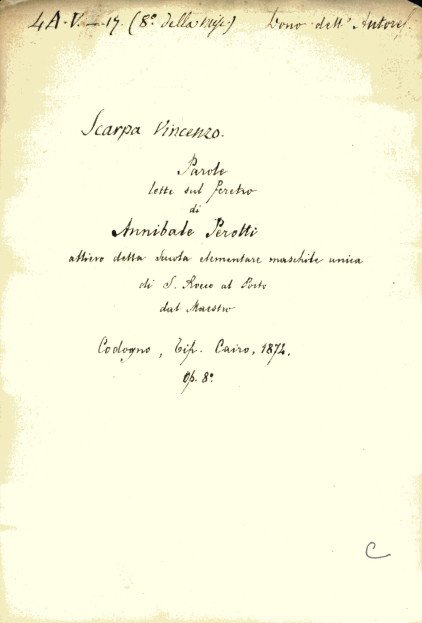 4A. V. - 17. (8º della misc) Dono dell' Autore.
Scarpa Vincenzo.
Parole
lette sul feretro
di
Annibale Perotti
allievo della Scuola elementare maschile unica
di S. Rocco al Porto
dal Maestro
Codogno, Tip. Cairo, 1874.
Op. 8º
C